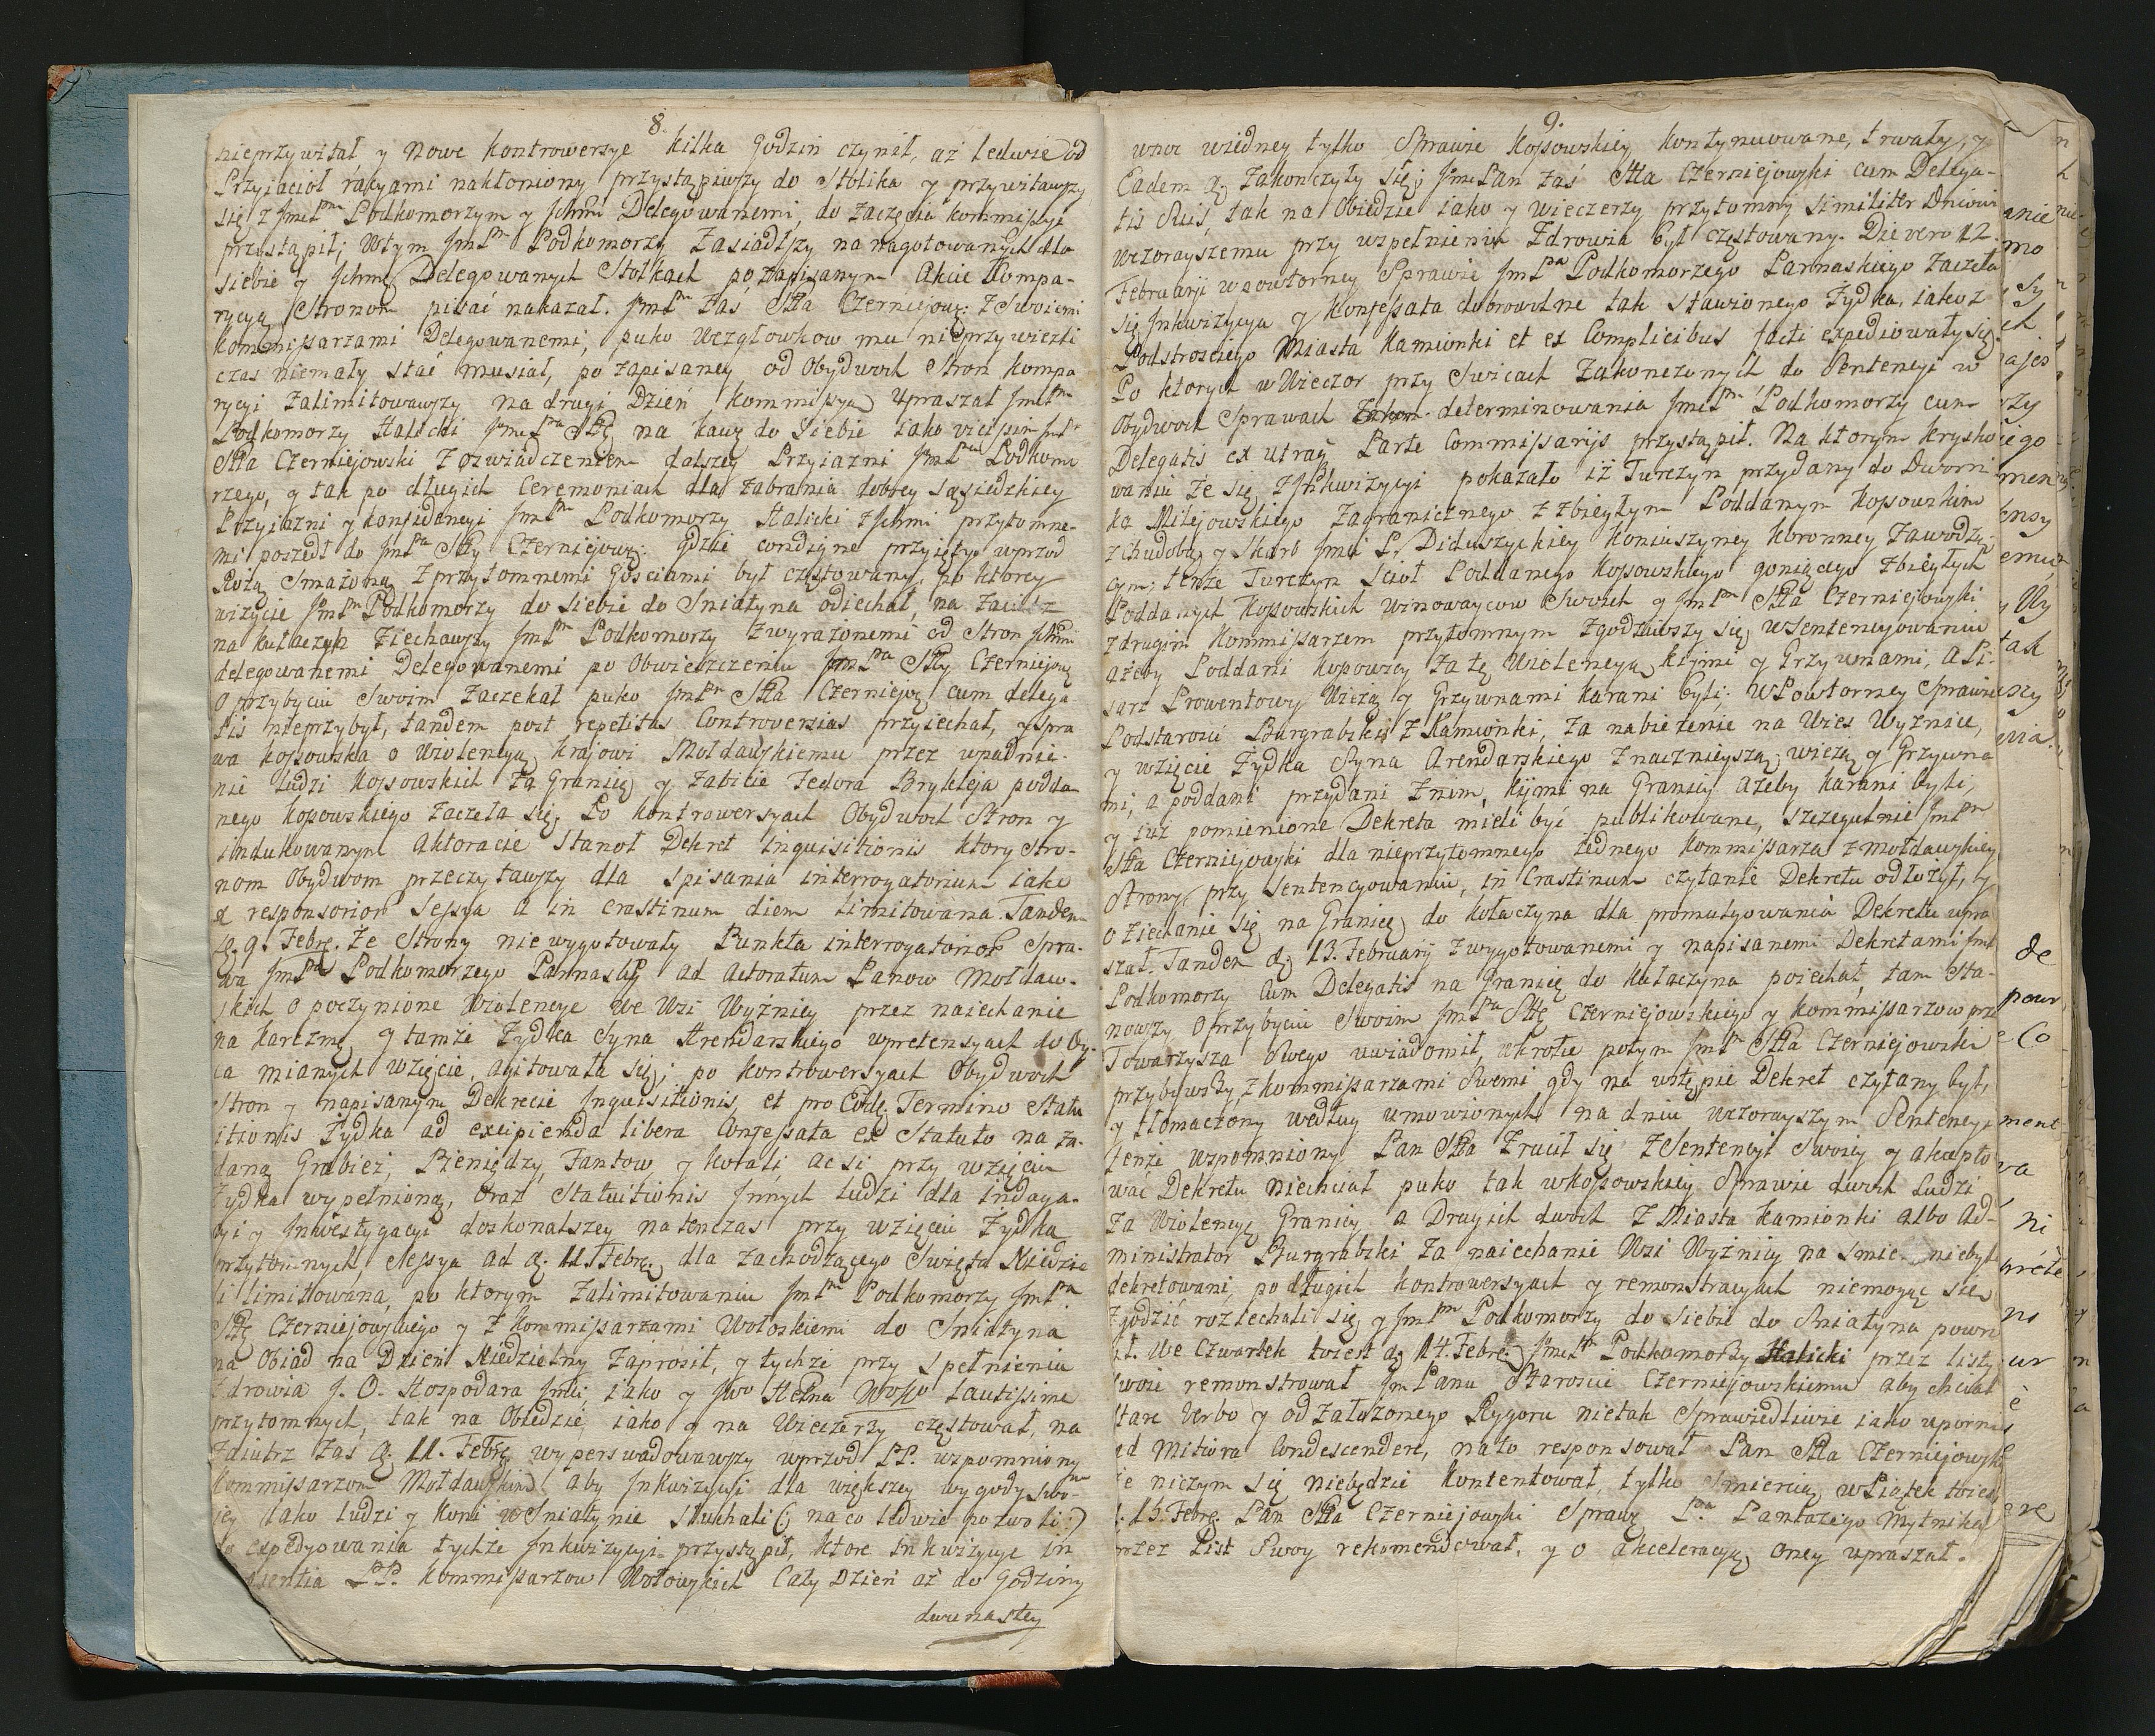 8.
nieprzywitał y nowe kontrowersye kilka Godzin czynił, aż ledwie od
Przyiacioł racyami nakłoniony przystąpiwszy do Stolika y przywitawszy
się z JmcPm Podkomorzym y Ichmi Delegowanemi, do zaczęcia kommissyi
przystąpił; Wtym JmcPn Podkomorzy zasiadłszy na nagotowanych dla
siebie y Ichmc Delegowanych Stołkach po zapisanym Akcie Compa-
rycyą Stronom pisać nakazał. JmcPn zaś Stta Czerniejows: z Swoiemi
Kommissarzami Delegowanemi, puko Wezgłowkow mu nieprzywiezli
czas niemały stać musiał, po zapisaney od Obydwoch Stron Kompa
rycyi zalimitowawszy na drugi Dzień Kommissyą Upraszał JmcPn
Podkomorzy Halicki JmcPa Sttę na kawę do siebie iako vicissim JmP
Stta Czerniejowski z oświadczeniem dalszey Przyiazni JmcPna Podkomo
rzego, y tak po długich Ceremoniach dla zabrania dobrey sąsiedzkiey
Przyiazni y konfidencyi JmcPn Podkomorzy Halicki z Ichmi przytomne-
mi poszedł do JmcPa Stty Czerniejows: gdzie condigne przyięty wprzod
Rożą Smażoną z przytomnemi Gosciami był częstowany, po ktorey
wizycie JmcPn Podkomorzy do siebie do Sniatyna odiechał, na zaiutrz
na Kułaczyn ziechawszy JmcPn Podkomorzy z wyrażonemi od Stron Ichm
delegowanemi Delegowanemi po Obwieszczeniu JmcPa Stty Czerniejows
o przybyciu Swoim zaczekał puko JmcPn Stta Czerniejos cum delega
tis nieprzybył, tandem post repetitas Controversias przyiechał, y spra
wa kossowska o Wiolencyą krajowi Mołdawskiemu przez wpadnie-
nie ludzi Kossowskich za Granicę y zabicie Fedora Brykleja podda-
nego kossowskiego zaczęła się. Po kontrowersyach Obydwoch Stron y
indukowanym aktoracie stanoł Dekret inquisitionis ktory Stro-
nom Obydwom przeczytawszy dla spisania interrogatorium iako
et responsorior Sessya a in crastinum diem limitowana. Tandem
d. 9. Febrę. że Strony niewygotowały Punkta interrogatorior Spra-
wa JmcPa Podkomorzego Parnaskieo ad actoratum Panow Mołdaw-
skich o poczynione Wiolencye we Wsi Wyżnicy przez naiechanie
na karczmę y tamże Żydka Syna Arendarskiego wpretensyach do Oy-
ca mianych wzięcie, agitowała się; po kontrowersyach Obydwoch
Stron y napisanym Dekrecie Inquisitionis, et pro Eodę Termino Statu
itionis Żydka ad excipienda libera Confessata ex Statuto na za-
daną Grabież, Pieniędzy, Fantow y Korali ac si przy wzięciu
Żydka wypełnioną, Oraz Statuitionis Innych ludzi dla indaga-
cyi y Inwestygacyi doskonalszey natenczas przy wzięciu Żydka
przytomnych Sessya ad d. 11. Febrę. dla zachodzącego Swięta Niedzie
li limitowana, po ktorym zalimitowaniu JmcPn Podkomorzy JmcPa
Sttę Czerniejowskiego y z Kommissarzami Wołoskiemi do Sniatyna
na Obiad na Dzień Niedzielny zaprosił, y tychże przy spełnieniu
Zdrowia J. O. Hospodara Jmci iako y JWo Hetna Wo Ko lautissime
przytomnych, tak na Obiedzie, iako y na Wieczerzy częstował, na
Zaiutrz zaś d. 11. Febrę wyperswadowawszy wprzod PP. wspomniony
Kommissarzom Mołdawskim aby Inkwizycyi dla większey wygody swo-
iey iako ludzi y Koni w Sniatynie słuchali (: na co ledwie pozwoli :)
do expedyowania tychże Inkwizycyi przystąpił, ktore inkwizycye in
sentia PP. Kommissarzow Wołoskich Cały Dzień aż do Godziny
dwunastey
9.
wnoc wiedney tylko Sprawie Kossowskiey kontynuowane, trwały, y
Eadem d. zakończyły się; JmcPan zaś Stta Czerniejowski cum Delega-
tis Suis, tak na Obiedzie iako y Wieczerzy przytomny similiter Dniowi
Wczorayszemu przy wspełnieniu Zdrowia był częstowany. Die vero 12.
Februarij w powtorney Sprawie JmcPa Podkomorzego Parnaskiego zaczęła
się Inkwizycya y Konfessata dobrowolne tak stawionego Żydka, iako z
Podstrosciego Miasta Kamionki et ex Complicibus facti expediowały się.
Po ktorych w Wieczor przy Swicach zakonczonych do Sentencyi w
Obydwoch Sprawach determinowania JmcPn Podkomorzy cum
Delegatis ex utraq Parte Commissarijs przystąpił. Na ktorym krysko
waniu że się z Inkwizycyi pokazało iż Turczyn przydany do Dworni
ka Milejowskiego Zagranicznego z zbiegłym Poddanym Kossowskim
z chudobą y Skarb Jmci P. Diduszyckiey Koniuszyney Koronney zawodzą-
cym; tenże Turczyn scioł Poddanego Kossowskiego goniącego zbiegłych
Poddanych Kossowskich winowaycow Swoich y JmcPn Stta Czerniejowski
z drugim Kommissarzem przytomnym zgodziwszy się w Sentencyowaniu
ażeby Poddani Kossowscy za tę Wiolencyą kijmi y Grzywnami, a Pi-
sarz Prowentowy Wieżą y Grzywnami karani byli; w Powtorney Sprawie
Podstarosci Burgrabski z Kamionki, za nabieżenie na Wies Wyżnice,
y wzięcie Żydka Syna Arendarskiego znacznieyszą wieżą y Grzywna
mi, a poddani przydani z nim, kijmi na Granicy ażeby karani byli,
y iuż pomienione Dekreta mieli być publikowane, szczegulnie JmcPn
Stta Czerniejowski dla nieprzytomnego iednego Kommissarza z mołdawskiey
Strony przy sentencyowaniu, in Crastinum czytanie Dekretu odłożył, y
o ziechanie się na Granicę do Kołaczyna dla promulgowania Dekretu upra
szał. Tandem d. 13. February z wygotowanemi y napisanemi Dekretami Jmc
Podkomorzy Cum Delegatis na Granicę do Kułaczyna poiechał, tam sta-
nowszy o przybyciu Swoim JmcPa Sttę Czerniejowskiego y kommissarzow prz
Towarzysza Swego uwiadomił, wkrotce potym JmcPn Stta Czerniejowski
przybywszy z kommissarzami Swemi gdy na wstępie Dekret czytany był,
y tłomaczony według umowionych na dniu wczorayszym Sentencyi
tenże wspomniony Pan Stta Zrucił się z Sentencyi Swoiey y akcepto
wać Dekretu niechciał puko tak w kossowskiey Sprawie dwoch Ludzi
za Wiolencyę Granicy, a Drugich dwoch z Miasta Kamionki albo Ad-
ministrator Burgrabski za naiechanie Wsi Wyżnicy na smierć niebyli
dekretowani, po długich kontrowersyach y remonstracyach niemogąc sie
zgodzić roziechali się y JmcPn Podkomorzy do siebie do Sniatyna powro
ił. We Czwartek toiest d. 14. Febrę. JmcPn Podkomorzy Halicki przez listy
swoie remonstrował Jm Panu Staroscie Czerniejowskiemu aby chciał
stare Verbo y od założonego Rygoru nietak sprawiedliwie iako upornie
ad mitiora Condescendere, na to responsował Pan Stta Czerniejowsk
że niczym się niebędzie kontentował, tylko Smiercią w Piątek toiest
d. 15. Febrę. Pan Stta Czerniejowski Sprawę Pa Pantazego Mytnika
przez List Swoy rekomendował, y o akceleracyę oney upraszał.